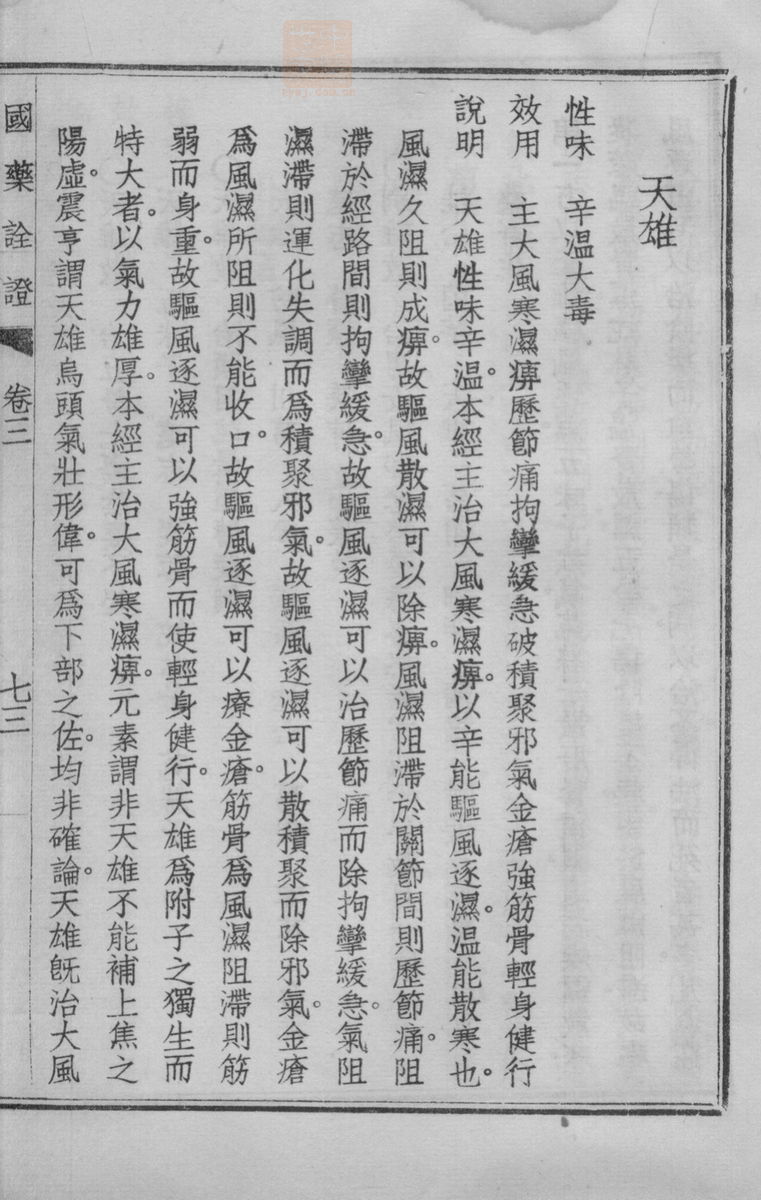 天雄
性味　辛温大毒
效用　主大風寒濕痹歷節痛拘攣緩急破積聚邪氣金瘡強筋骨輕身健行
說明　天雄性味辛温。本經主治大風寒濕痹。以辛能驅風逐濕。温能散寒也。
風濕久阻則成痹。故驅風散濕可以除痹。風濕阻滯於關節間則歷節痛。阻
滯於經路間則拘攣緩急。故驅風逐濕可以治歷節痛而除拘攣緩急。氣阻
濕滯則運化失調而爲積聚邪氣。故驅風逐濕可以散積聚而除邪氣。金瘡
爲風濕所阻則不能收口。故驅風逐濕可以療金瘡。筋骨爲風濕阻滯則筋
弱而身重。故驅風逐濕可以強筋骨而使輕身健行。天雄爲附子之獨生而
特大者。以氣力雄厚。本經主治大風寒濕痹。元素謂非天雄不能補上焦之
陽虛。震亨謂天雄烏頭氣壯形偉。可爲下部之佐。均非確論。天雄既治大風
國藥詮證　卷三　七三